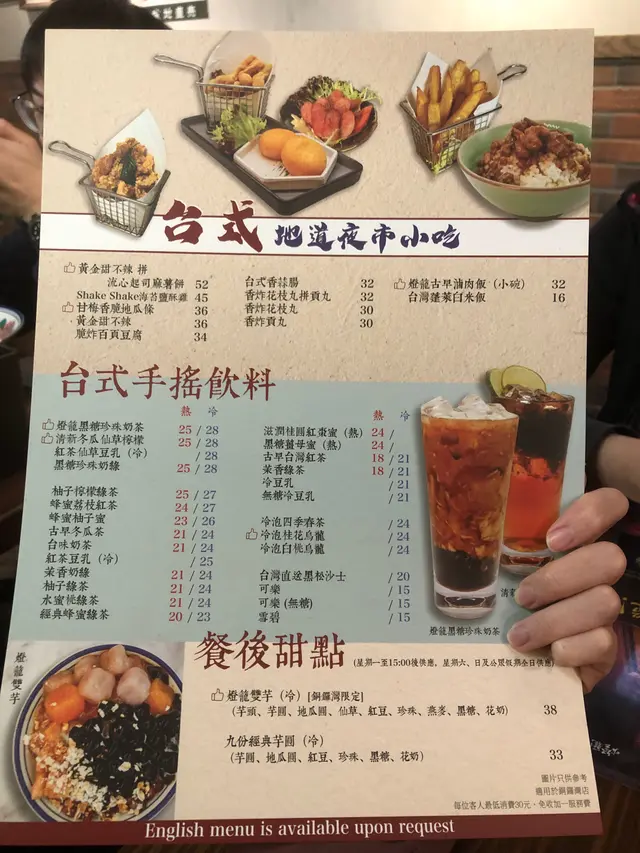 台式 地道夜市小吃
黃金甜不辣 拼
流心起司麻薯餅 52
Shake Shake海苔鹽酥雞 45
甘梅香脆地瓜條 36
黃金甜不辣 36
脆炸百頁豆腐 34
台式香蒜腸 32
香炸花枝丸拼貢丸 32
香炸花枝丸 30
香炸貢丸 30
燈龍古早滷肉飯（小碗） 32
台灣蓬萊白米飯 16
台式手搖飲料
熱 冷
燈龍黑糖珍珠奶茶 25 / 28
清新冬瓜仙草檸檬 25 / 28
紅茶仙草豆乳（冷） / 28
黑糖珍珠奶綠 25 / 28
柚子檸檬綠茶 25 / 27
蜂蜜荔枝紅茶 24 / 27
蜂蜜柚子蜜 23 / 26
古早冬瓜茶 21 / 24
台味奶茶 21 / 24
紅茶豆乳（冷） / 25
茉香奶綠 21 / 24
柚子綠茶 21 / 24
水蜜桃綠茶 21 / 24
經典蜂蜜綠茶 20 / 23
熱 冷
滋潤桂圓紅棗蜜（熱） 24 /
黑糖薑母蜜（熱） 24 /
古早台灣紅茶 18 / 21
茉香綠茶 18 / 21
冷豆乳 / 21
無糖冷豆乳 / 21
冷泡四季春茶 / 24
冷泡桂花烏龍 / 24
冷泡白桃烏龍 / 24
台灣直送黑松沙士 / 20
可樂 / 15
可樂（無糖） / 15
雪碧 / 15
燈龍黑糖珍珠奶茶
餐後甜點 (星期一至15:00後供應，星期六、日及公眾假期全日供應)
燈龍雙芋
燈龍雙芋（冷）[銅鑼灣限定]
(芋頭、芋圓、地瓜圓、仙草、紅豆、珍珠、燕麥、黑糖、花奶) 38
九份經典芋圓（冷）
(芋圓、地瓜圓、紅豆、珍珠、黑糖、花奶) 33
圖片只供參考
適用於銅鑼灣店
每位客人最低消費30元，免收加一服務費
English menu is available upon request